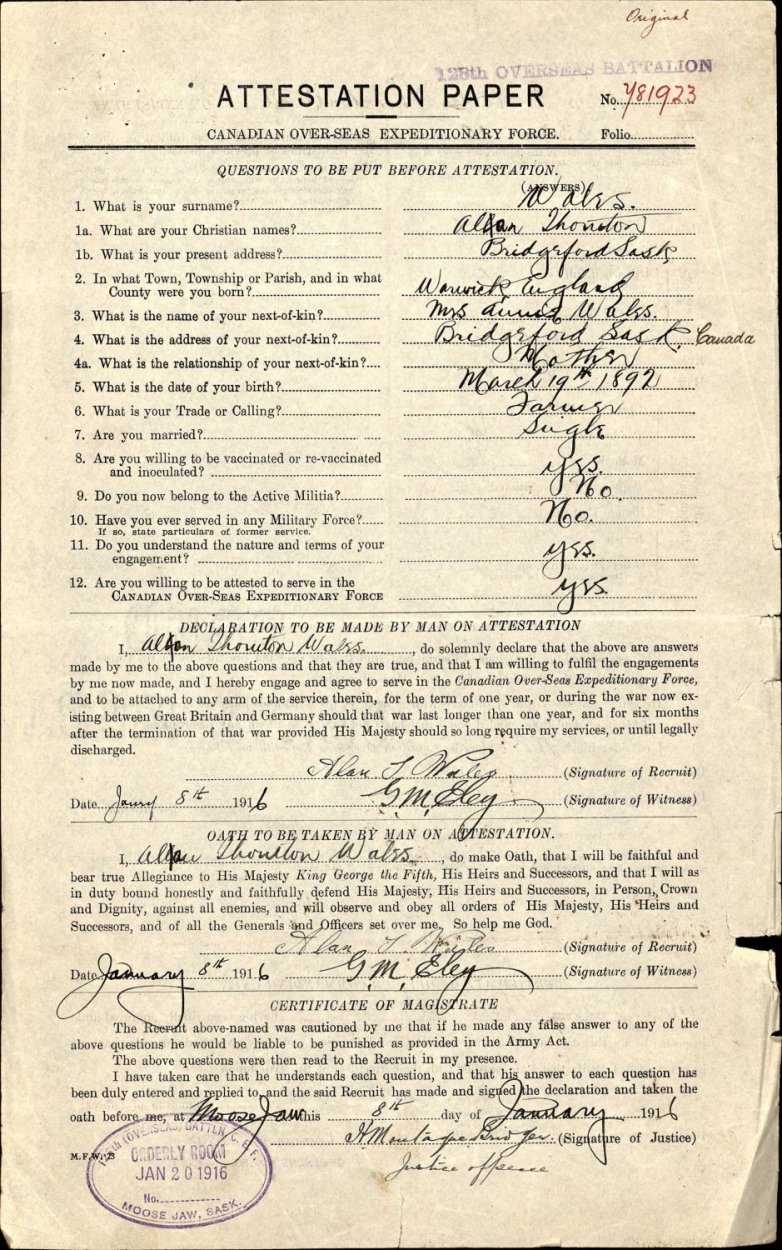 Original
128th OVERSEAS BATTALION
ATTESTATION PAPER
No. 781923
CANADIAN OVER-SEAS EXPEDITIONARY FORCE.
Folio
QUESTIONS TO BE PUT BEFORE ATTESTATION.
(ANSWERS)
1. What is your surname? Wales.
1a. What are your Christian names? Alan Thornton
1b. What is your present address? Bridgeford Sask
2. In what Town, Township or Parish, and in what
County were you born? Warwick, England
3. What is the name of your next-of-kin? Mrs Annie Wales.
4. What is the address of your next-of-kin? Bridgeford Sask. Canada
4a. What is the relationship of your next-of-kin? Mother
5. What is the date of your birth? March 19th 1892
6. What is your Trade or Calling? Farmer
7. Are you married? Single
8. Are you willing to be vaccinated or re-vaccinated
and inoculated? yes.
9. Do you now belong to the Active Militia? No.
10. Have you ever served in any Military Force? No.
If so, state particulars of former service.
11. Do you understand the nature and terms of your
engagement? yes.
12. Are you willing to be attested to serve in the
CANADIAN OVER-SEAS EXPEDITIONARY FORCE yes.
DECLARATION TO BE MADE BY MAN ON ATTESTATION
I, Alan Thornton Wales, do solemnly declare that the above are answers
made by me to the above questions and that they are true, and that I am willing to fulfil the engagements
by me now made, and I hereby engage and agree to serve in the Canadian Over-Seas Expeditionary Force,
and to be attached to any arm of the service therein, for the term of one year, or during the war now ex-
isting between Great Britain and Germany should that war last longer than one year, and for six months
after the termination of that war provided His Majesty should so long require my services, or until legally
discharged.
Alan T Wales (Signature of Recruit)
Date Jany 8th 1916 G.M. Eley (Signature of Witness)
OATH TO BE TAKEN BY MAN ON ATTESTATION.
I, Alan Thornton Wales, do make Oath, that I will be faithful and
bear true Allegiance to His Majesty King George the Fifth, His Heirs and Successors, and that I will as
in duty bound honestly and faithfully defend His Majesty, His Heirs and Successors, in Person, Crown
and Dignity, against all enemies, and will observe and obey all orders of His Majesty, His Heirs and
Successors, and of all the Generals and Officers set over me. So help me God.
Alan T Wales (Signature of Recruit)
Date January 8th 1916 G.M. Eley (Signature of Witness)
CERTIFICATE OF MAGISTRATE
The Recruit above-named was cautioned by me that if he made any false answer to any of the
above questions he would be liable to be punished as provided in the Army Act.
The above questions were then read to the Recruit in my presence.
I have taken care that he understands each question, and that his answer to each question has
been duly entered and replied to, and the said Recruit has made and signed the declaration and taken the
oath before me, at Moose Jaw this 8th day of January 1916
(Signature of Justice)
Justice of peace
M.F.W. 23
128th (OVERSEAS) BATT'LN, C.E.F.
ORDERLY ROOM
JAN 20 1916
No.
MOOSE JAW, SASK.